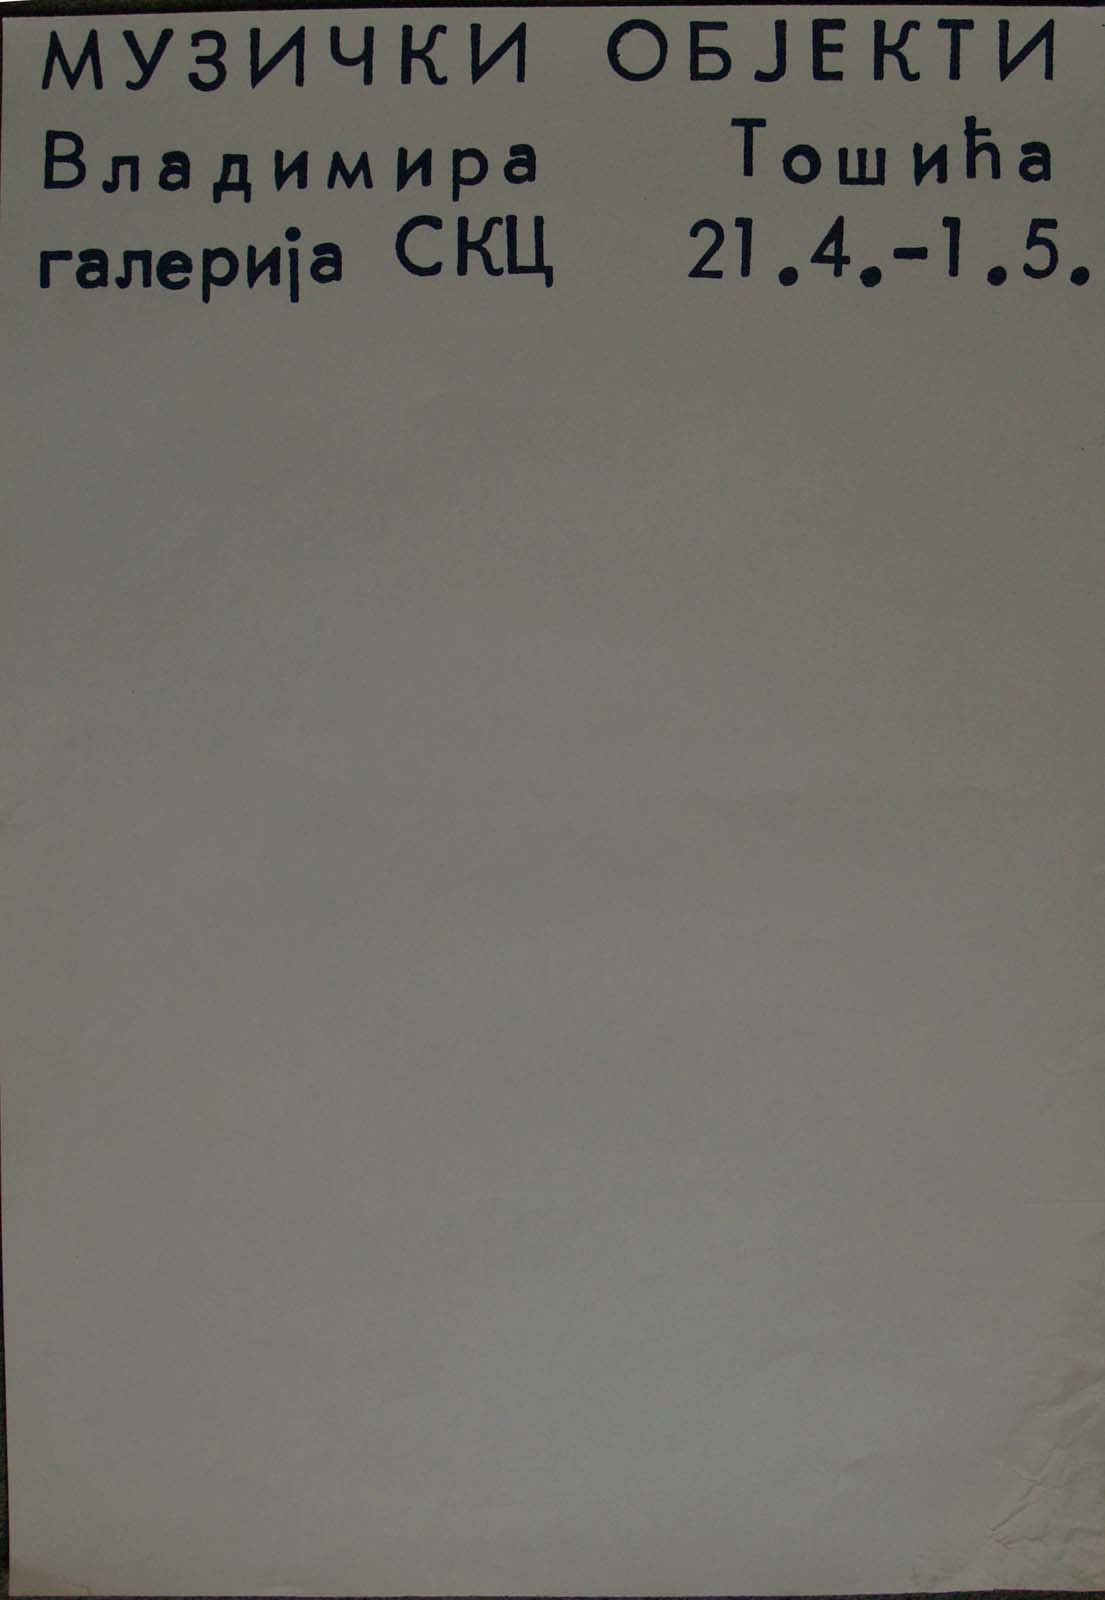 МУЗИЧКИ ОБЈЕКТИ
Владимира Тошића
галерија СКЦ 21.4.-1.5.